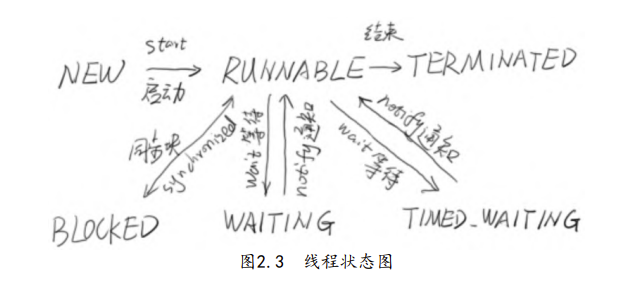 start
结束
NEW
RUNNABLE
TERMINATED
启动
同步块
synchronized
wait等待
notify通知
wait等待
notify通知
BLOCKED
WAITING
TIMED_WAITING
图2.3 线程状态图